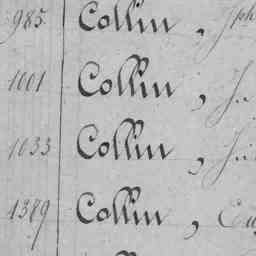 985 Collin, Jph
1001 Collin,
1033 Collin,
1389 Collin,